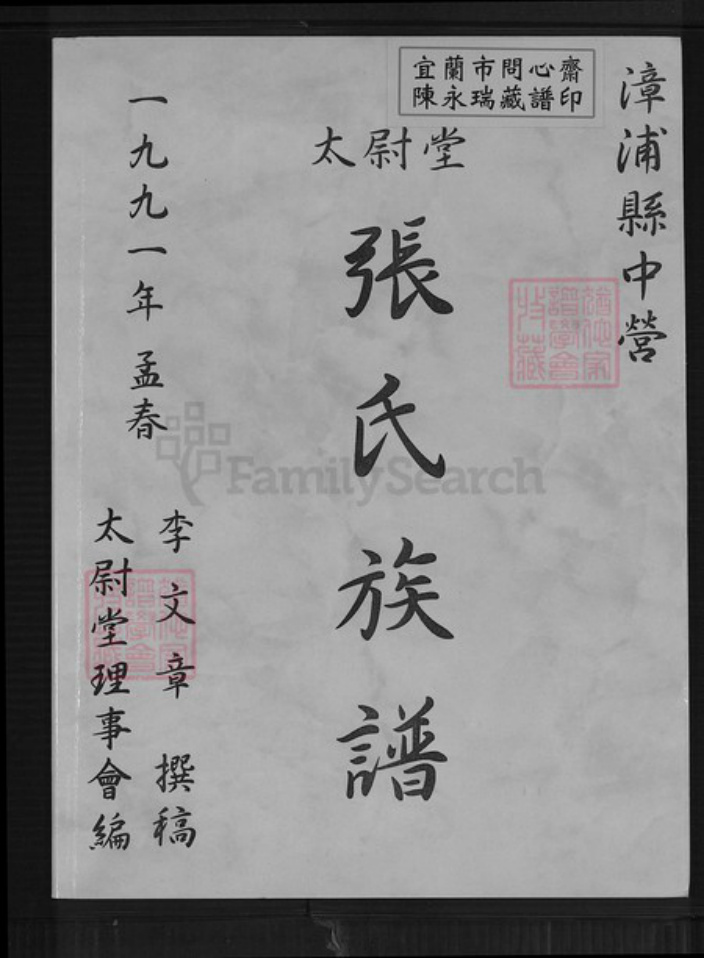 漳浦縣中營
宜蘭市問心齋
陳永瑞藏譜印
太尉堂
張氏族譜
一九九一年孟春
李文章撰稿
太尉堂理事會編
FamilySearch